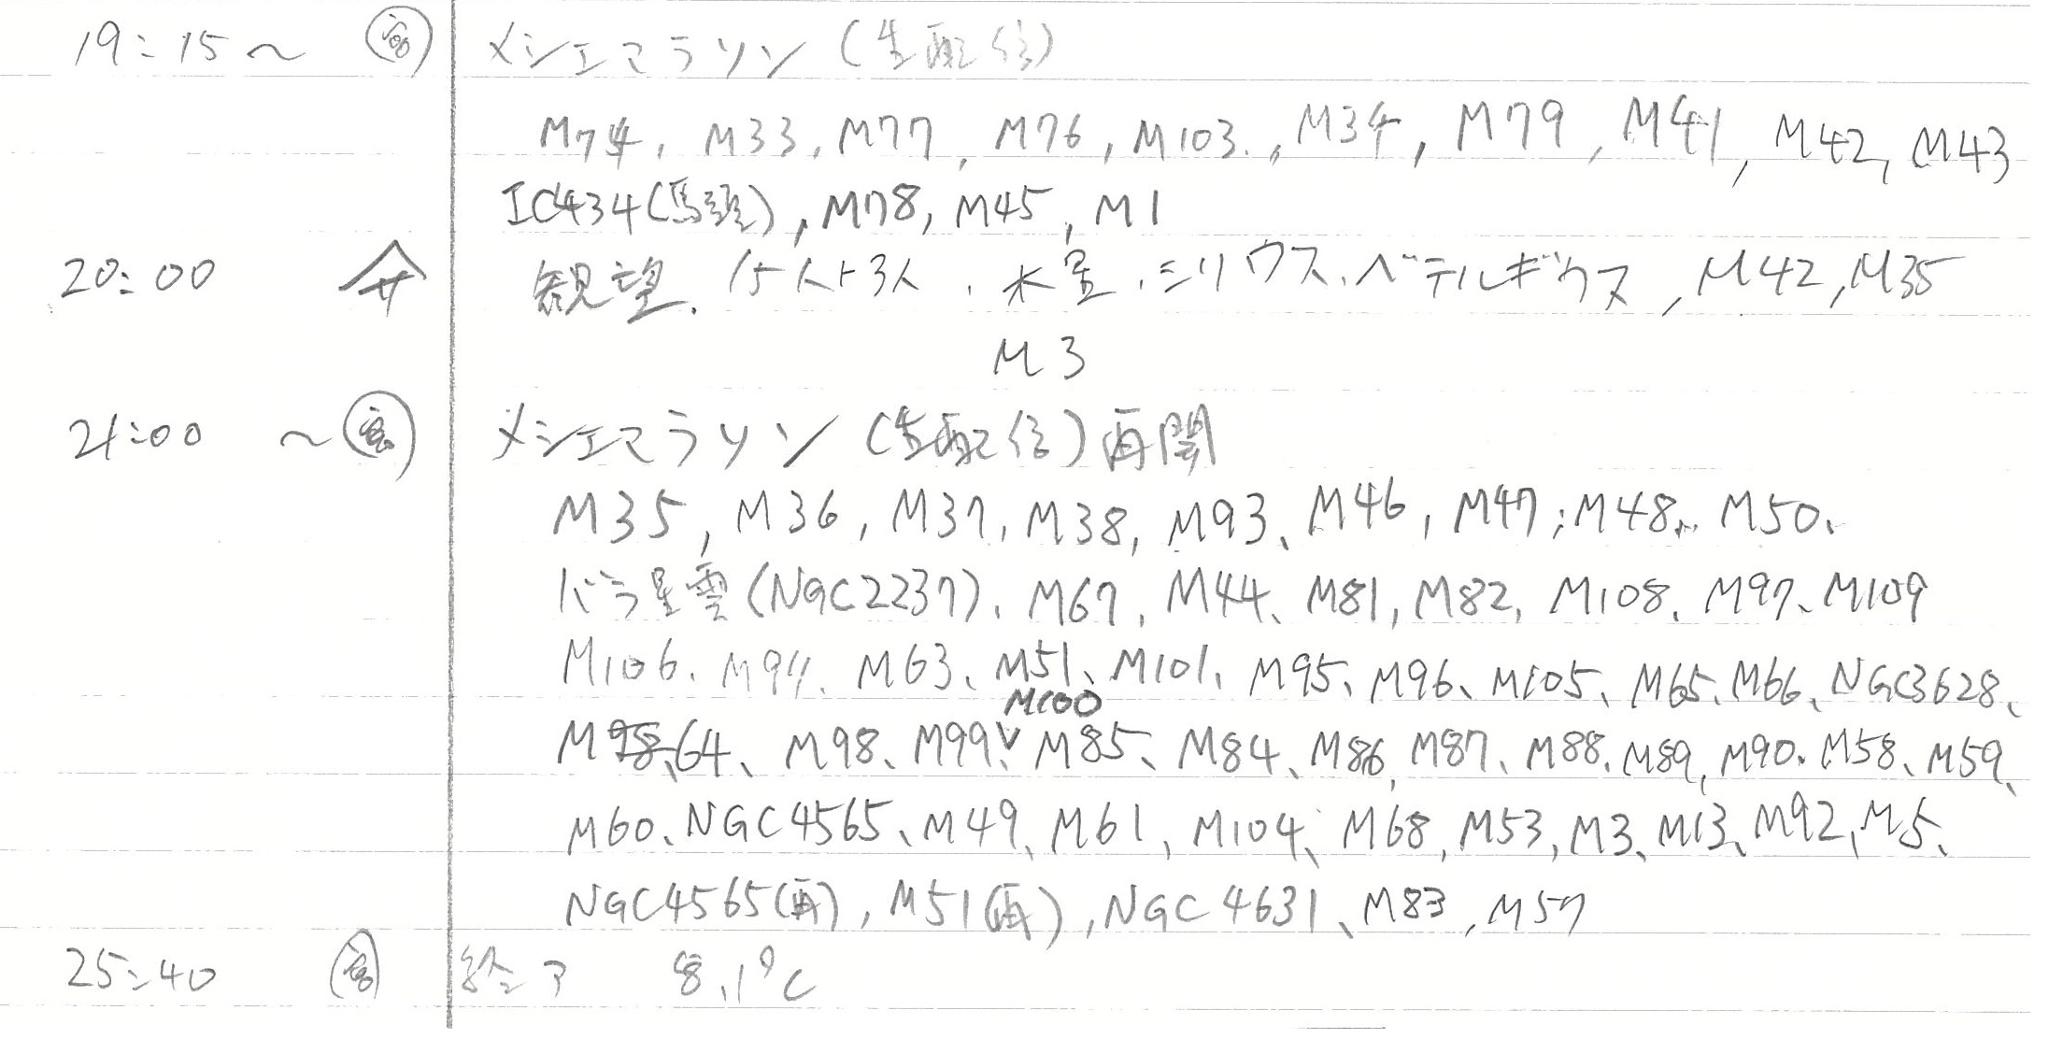 19:15～ メシエマラソン (生配信)
M74, M33, M77, M76, M103, M34, M79, M41, M42, M43
IC434(馬頭), M78, M45, M1
20:00 観望. 15人+3人. 木星.シリウス.ベテルギウス, M42, M35
M3
21:00 ～ メシエマラソン (生配信) 再開
M35, M36, M37, M38, M93、M46, M47, M48、M50、
バラ星雲(NGC2237)、M67, M44、M81, M82, M108、M97、M109
M106、M94、M63、M51、M101、M95、M96、M105、M65、M66、NGC3628、
M100
M98、64、M98、M99、M85、M84、M86, M87、M88、M89, M90、M58、M59、
M60、NGC4565、M49、M61, M104、M68, M53, M3、M13、M92, M5、
NGC4565(再), M51(再), NGC4631、M83, M57
25:40 終了 8.1℃